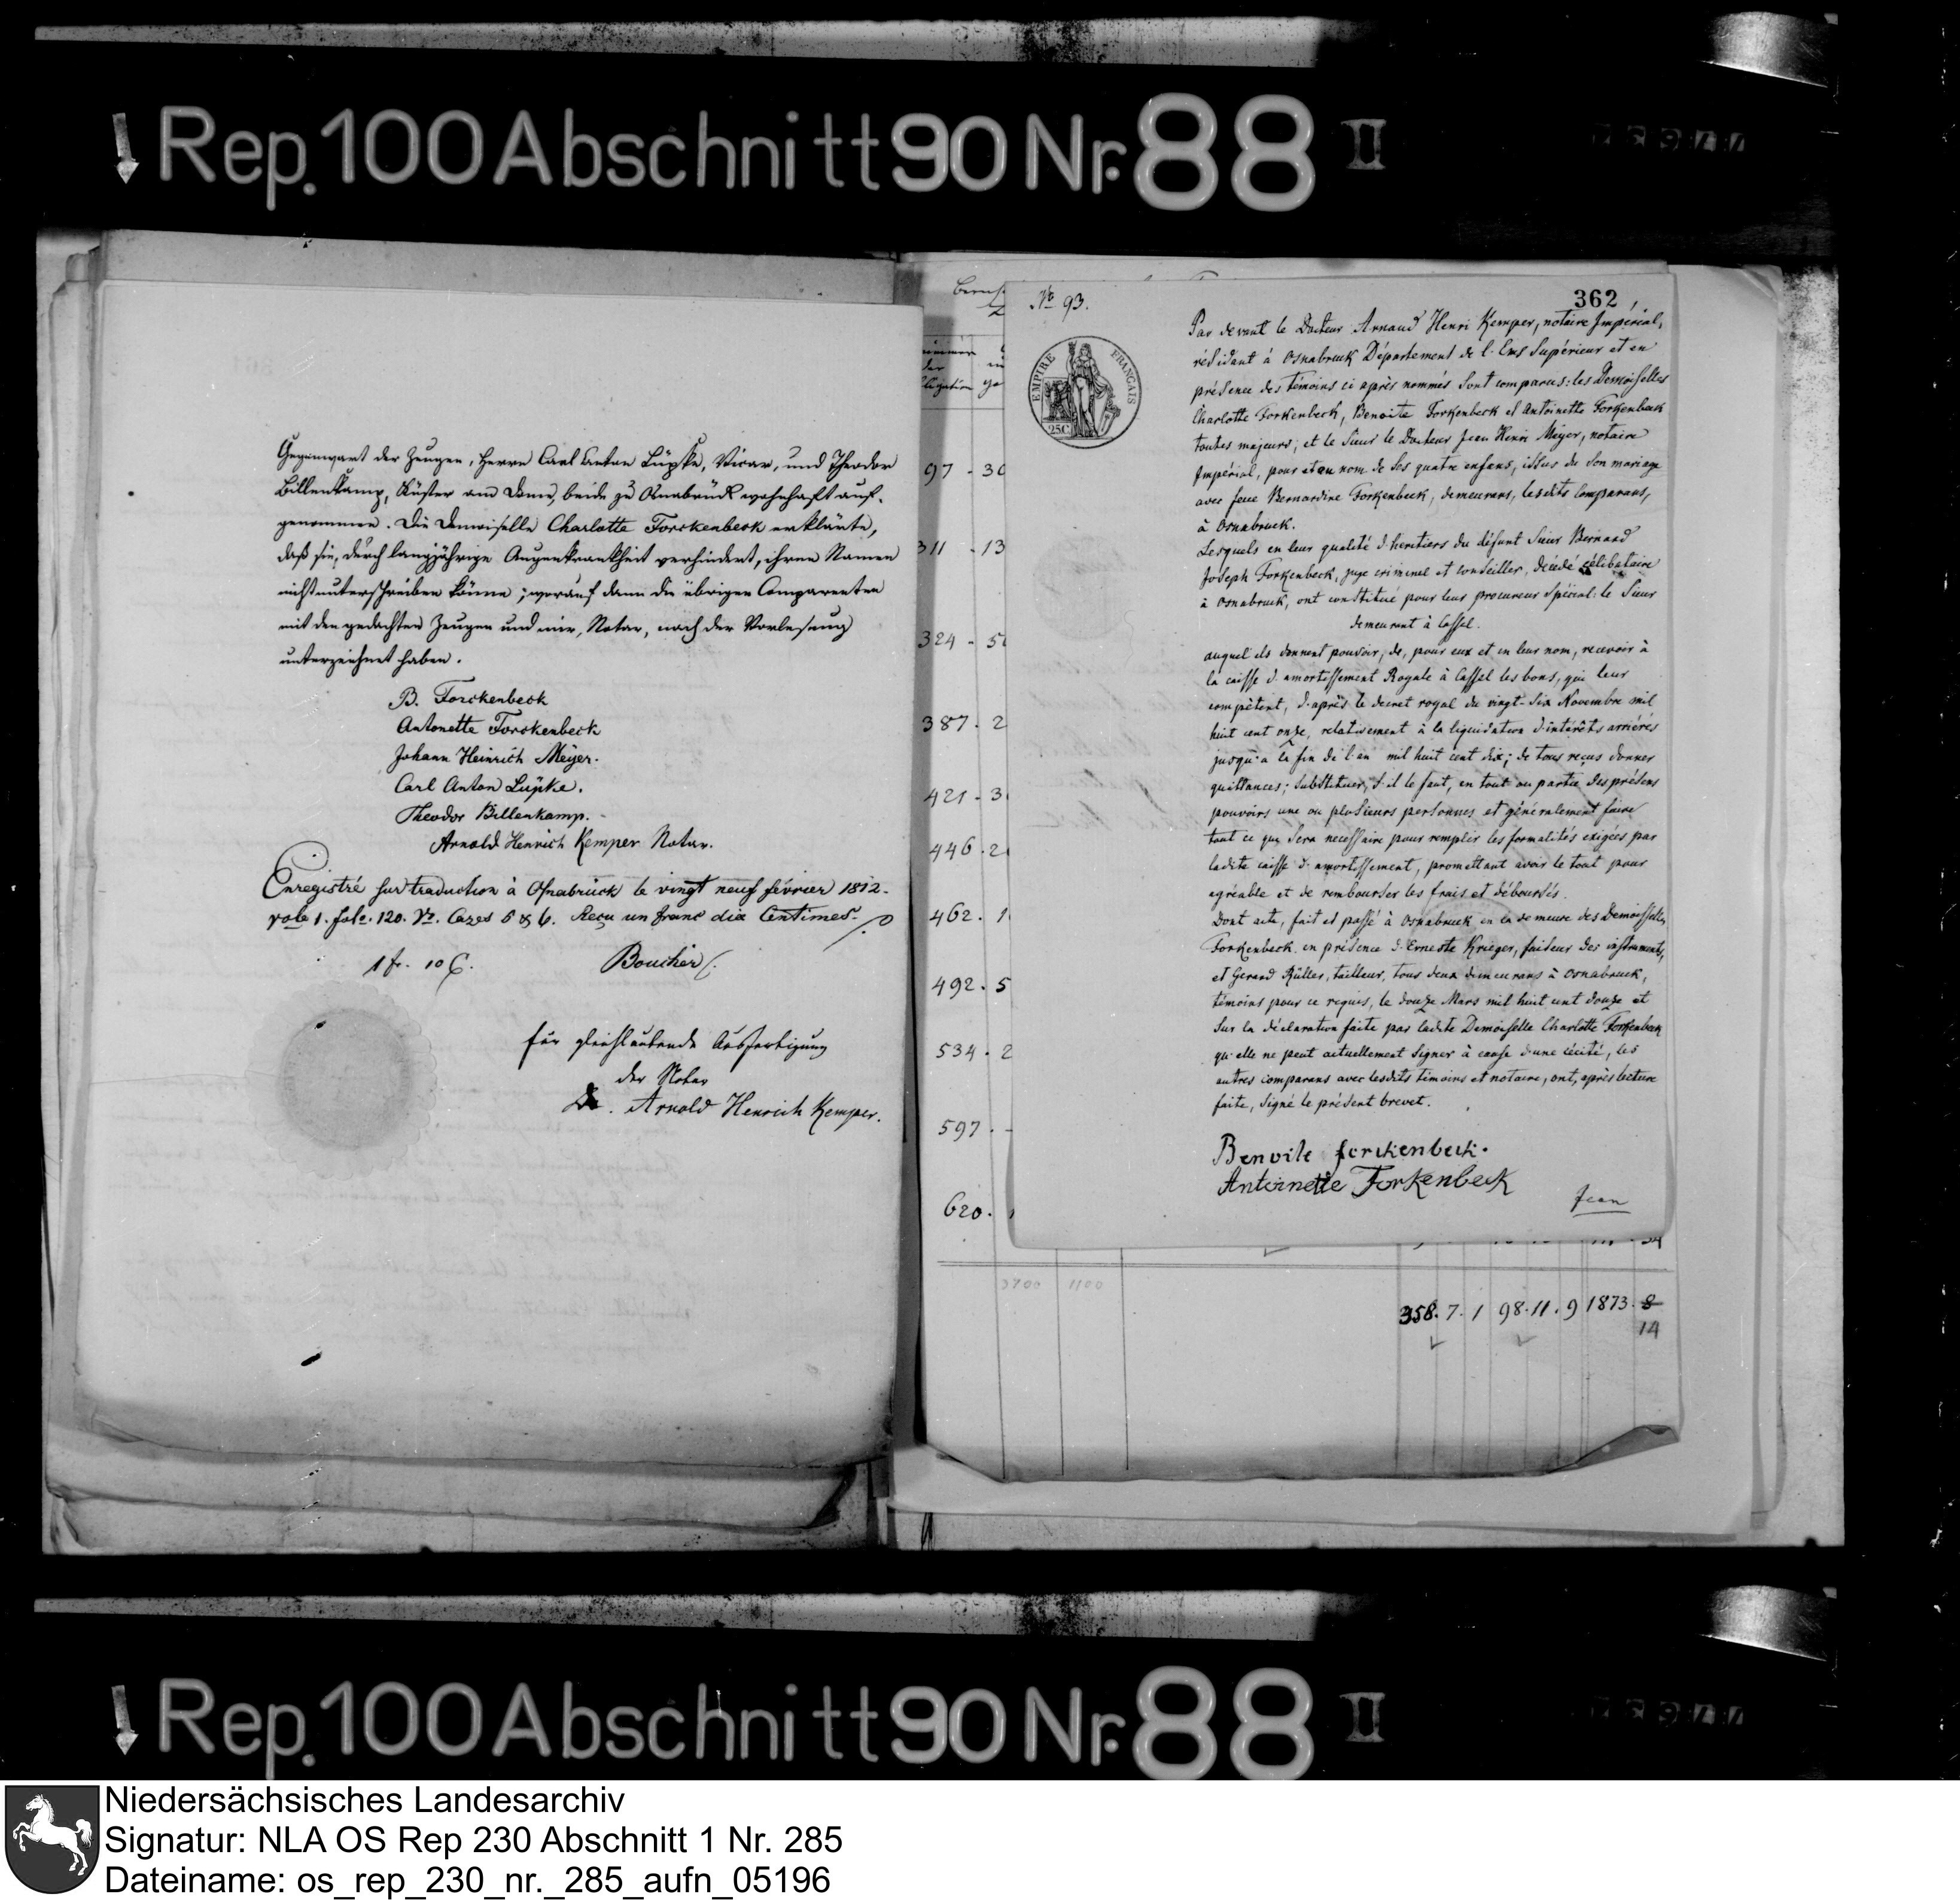 Rep. 100 Abschnitt 90 Nr. 88 II
Gegenwart der Zeugen, Herrn Carl Anton Lüpke, Vicar, und Theodor
Billenkamp, Küster am Dome, beide zu Osnabrück wohnhaft auf-
genommen. Die Demoiselle Charlotte Forckenbeck erklärte,
daß sie, durch langjährige Augenkrankheit verhindert, ihren Namen
nicht unterschreiben könne; worauf dann die übrigen Comparenten
mit den gedachten Zeugen und mir, Notar, nach der Vorlesung
unterzeichnet haben.
B. Forckenbeck
Antonette Forckenbeck
Johann Heinrich Meyer.
Carl Anton Lüpke.
Theodor Billenkamp.
Arnold Henrich Kemper Notar.
Enregistré sur traduction à Osnabrück le vingt neuf février 1812.
vole 1. fole. 120. Vo. Cazes 5 & 6. Reçu un franc dix Centimes.
1 fr. 10 C. Boucher
für gleichlautende Ausfertigung
der Notar
Dr. Arnold Henrich Kemper.
97 - 30
311 - 13
324 - 5
387 . 2
421 - 3
446 . 2
462 . 1
492 . 5
534 . 2
597 . -
620 .
3700 1100
358. 7. 1 98. 11. 9 1873. 8
14
No 93.
362
EMPIRE FRANÇAIS
25C
Par devant le Docteur Arnaud Henri Kemper, notaire Impérial,
résidant à Osnabruck Département de l'Ems Supérieur et en
présence des témoins ci après nommés sont comparus: les Demoiselles
Charlotte Forkenbeck, Benoite Forkenbeck et Antoinette Forkenbeck
toutes majeurs; et le Sieur le Docteur Jean Henri Meyer, notaire
Impérial, pour et au nom de ses quatre enfans, issus de son mariage
avec feue Bernardine Forkenbeck, demeurans, lesdits Comparans,
à Osnabruck.
Lesquels en leur qualité d'heritiers du défunt Sieur Bernard
Joseph Forkenbeck, juge criminel et conseiller, décédé célibataire
à Osnabruck, ont constitué pour leur procureur Spécial: le Sieur
demeurant à Cassel.
auquel ils donnent pouvoir, de, pour eux et en leur nom, recevoir à
la caisse d'amortissement Royale à Cassel les bons, qui leur
compètent, d'après le decret royal du vingt-six Novembre mil
huit cent onze, relativement à la liquidation d'intérêts arriérés
jusqu'a la fin de l'an mil huit cent dix; de tous reçus donner
quittances; substituer, s'il le faut, en tout ou partie des présens
pouvoirs une ou plusieurs personnes et généralement faire
tout ce qui sera necessaire pour remplir les formalités exigées par
ladite caisse d'amortissement, promettant avoir le tout pour
agréable et de rembourser les frais et déboursés.
Dont acte, fait et passé à Osnabruck en la demeure des Demoiselles
Forkenbeck en présence d'Erneste Krieger, faiseur des instruments,
et Gerard Rüller, tailleur, tous deux demeurans à Osnabruck,
témoins pour ce requis, le douze Mars mil huit cent douze et
sur la déclaration faite par ladite Demoiselle Charlotte Forkenbeck
qu'elle ne peut actuellement signer à cause d'une cécité, les
autres comparans avec lesdits témoins et notaire, ont, après lecture
faite, signé le présent brevet.
Benoite forckenbeck.
Antoinette Forkenbeck
Jean
Rep. 100 Abschnitt 90 Nr. 88 II
Niedersächsisches Landesarchiv
Signatur: NLA OS Rep 230 Abschnitt 1 Nr. 285
Dateiname: os_rep_230_nr._285_aufn_05196